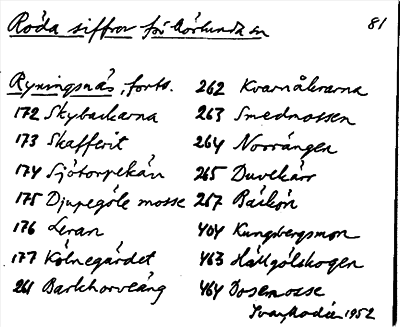 Röda siffror för
81
Ryningsnäs, forts.
172 Skybackarna
173 Skafferit
174 Sjötorpekärr
175 Djupegöle mosse
176 Leran
177 Kölnegärdet
261 Barkhorveäng
262 Kvarnåkrarna
263 Smedmossen
264 Norrängen
265 Duvekärr
267
404 Kungsbergsmon
463 Hällgölskogen
464 Bosemosse
1952